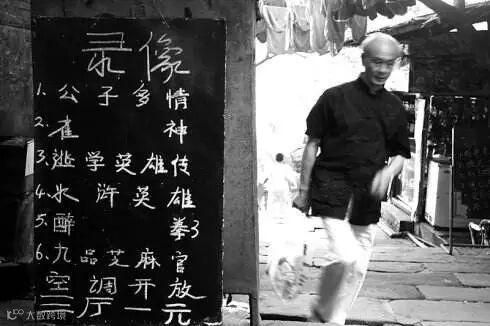 录像
1. 公子多情
2. 雀神
3. 逃学英雄传
4. 水浒英雄
5. 醉拳3
6. 九品芝麻官
空调开放
三厅一元
大数跨境